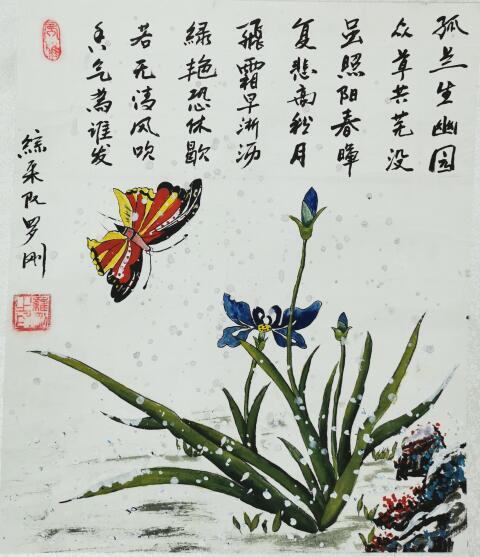 孤兰生幽园
众草共芜没
虽照阳春暉
复悲高秋月
飛霜早淅沥
緑艳恐休歇
若无清风吹
香气為谁发
綜采队罗刚